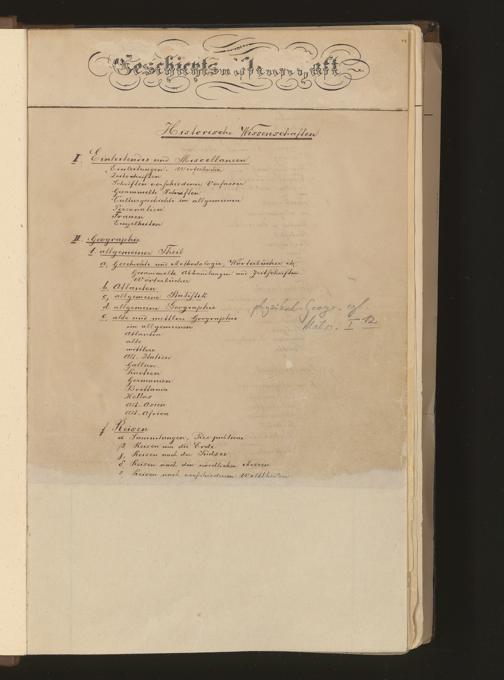 Geschichtswissenschaft
Historische Wissenschaften
I. Einleitendes und Miscellaneen
Einleitungen. Wörterbücher
Zeitschriften
Schriften verschiedener Verfasser
Gesammelte Schriften
Culturgeschichte im allgemeinen
Personalien
Frauen
Einzelheiten
II. Geographie
1. allgemeiner Theil
a. Geschichte und Methodologie, Wörterbücher etc.
Gesammelte Abhandlungen und Zeitschriften
Wörterbücher
b. Atlanten
c. allgemeine Statistik
d. allgemeine Geographie
physikal. Geogr. cf
e. alte und mittlere Geographie
I 12
im allgemeinen
Atlanten
alte
mittlere
Alt. Italien
Gallien
Germanien
Brittania
Hellas
Alt. Asien
Alt. Africa
f. Reisen
α Sammlungen,
β Reisen um die Erde
γ. Reisen nach der Südsee
δ Reisen nach den nördlichen Meeren
ε Reisen nach verschiedenen Welttheilen